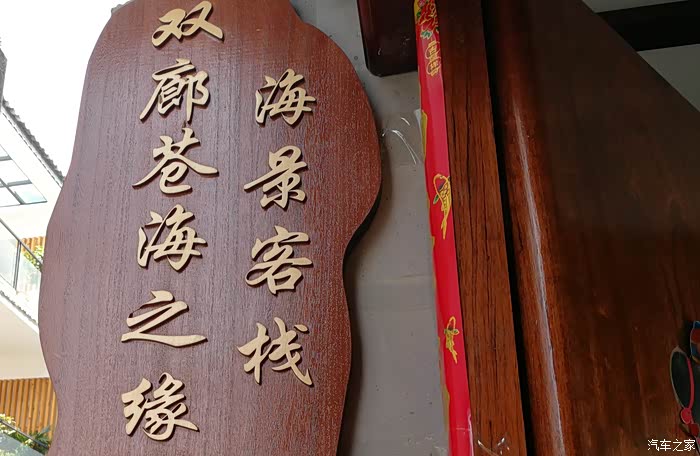 双廊苍海之缘
海景客栈
汽车之家